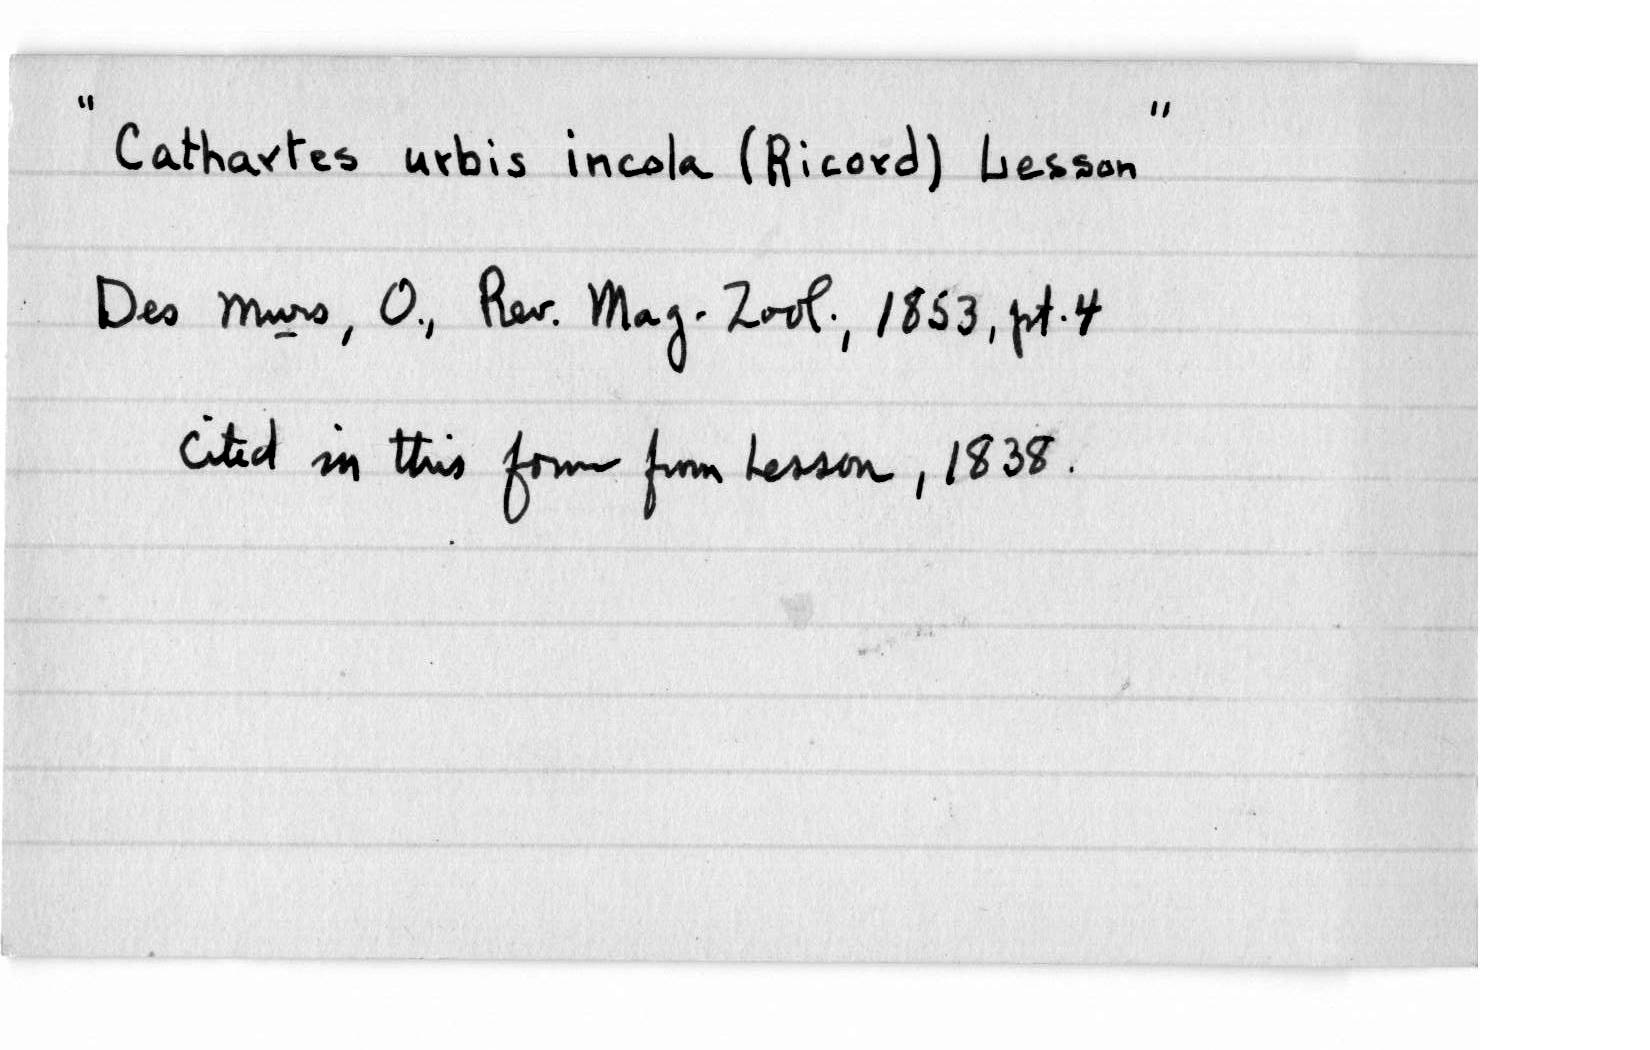 "Cathartes urbis incola (Ricord) Lesson"
Des Murs, O., Rev. Mag. Zool., 1853, pt. 4
Cited in this form from Lesson, 1838.